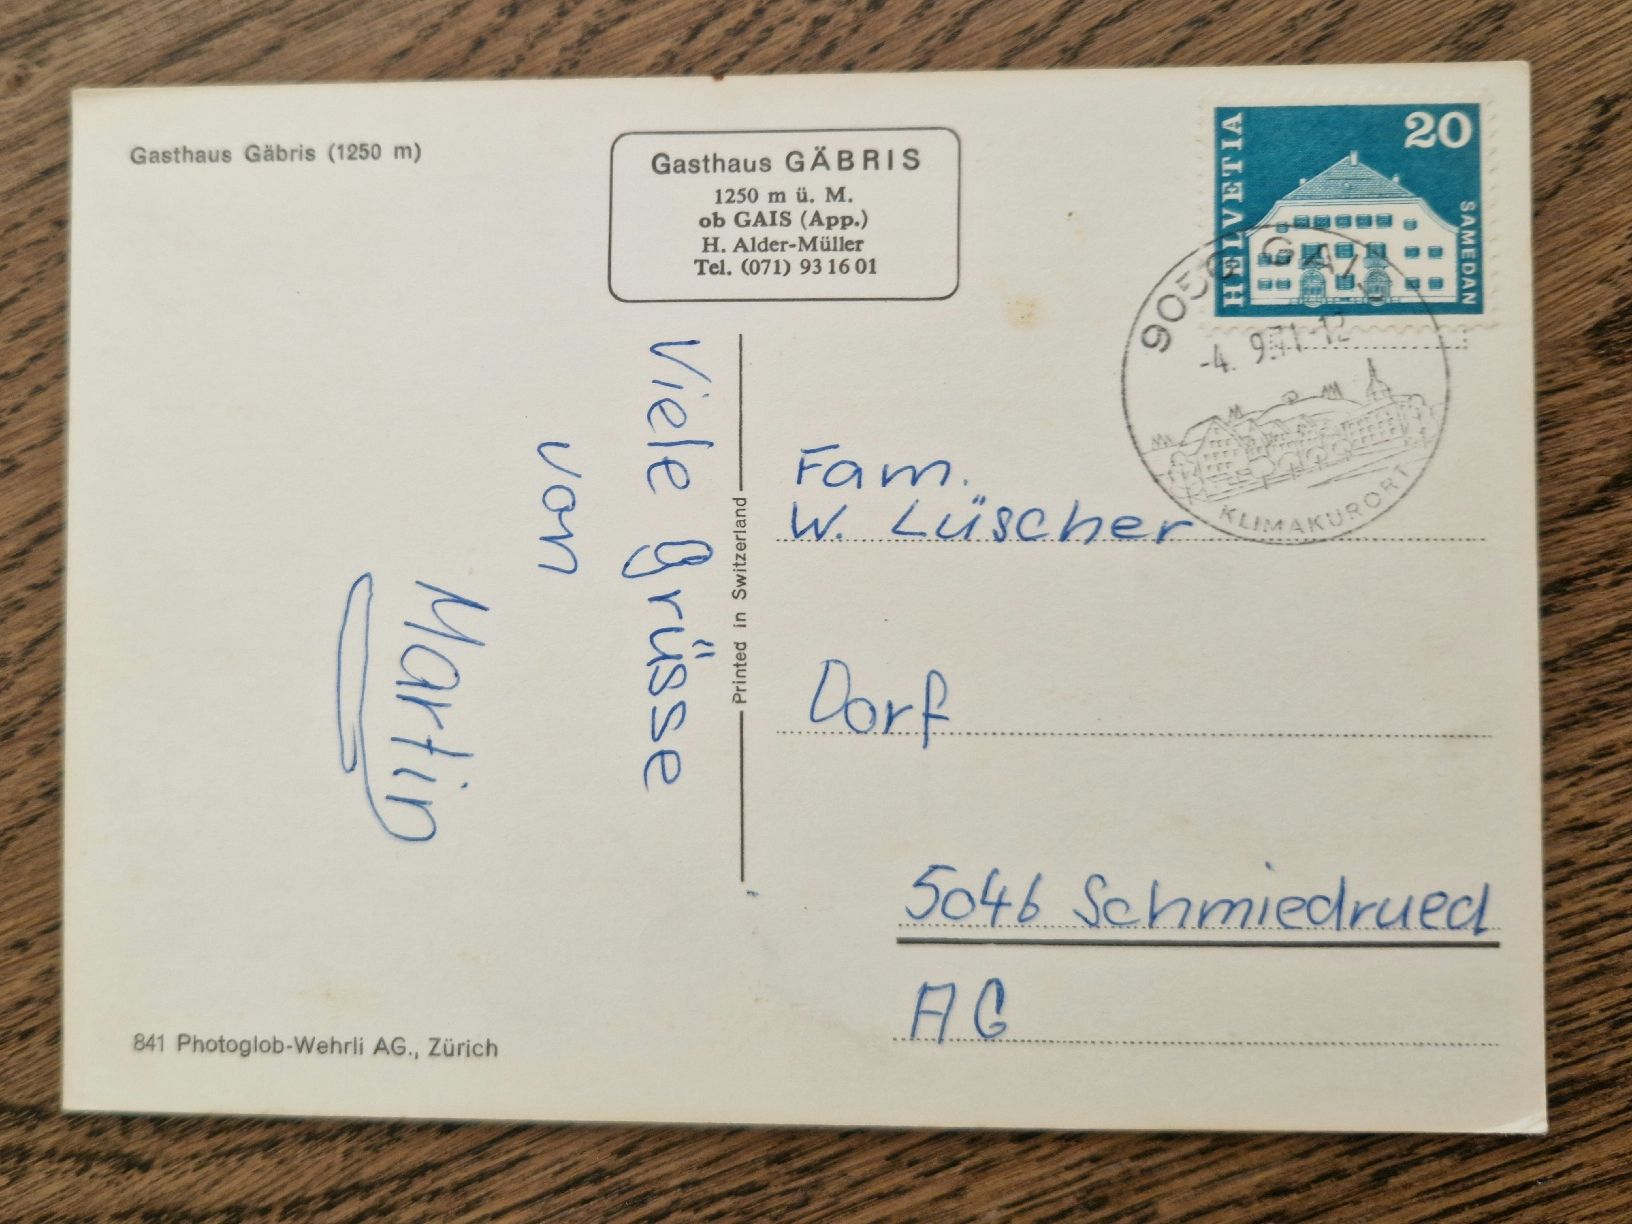 Gasthaus Gäbris (1250 m)
Gasthaus GÄBRIS
1250 m ü. M.
ob GAIS (App.)
H. Alder-Müller
Tel. (071) 93 16 01
HELVETIA
20
SAMEDAN
9056 GAIS
-4. 9.71-12
KLIMAKURORT
Viele Grüsse
von
Martin
Printed in Switzerland
Fam.
W. Lüscher
Dorf
5046 Schmiedrued
AG
841 Photoglob-Wehrli AG., Zürich